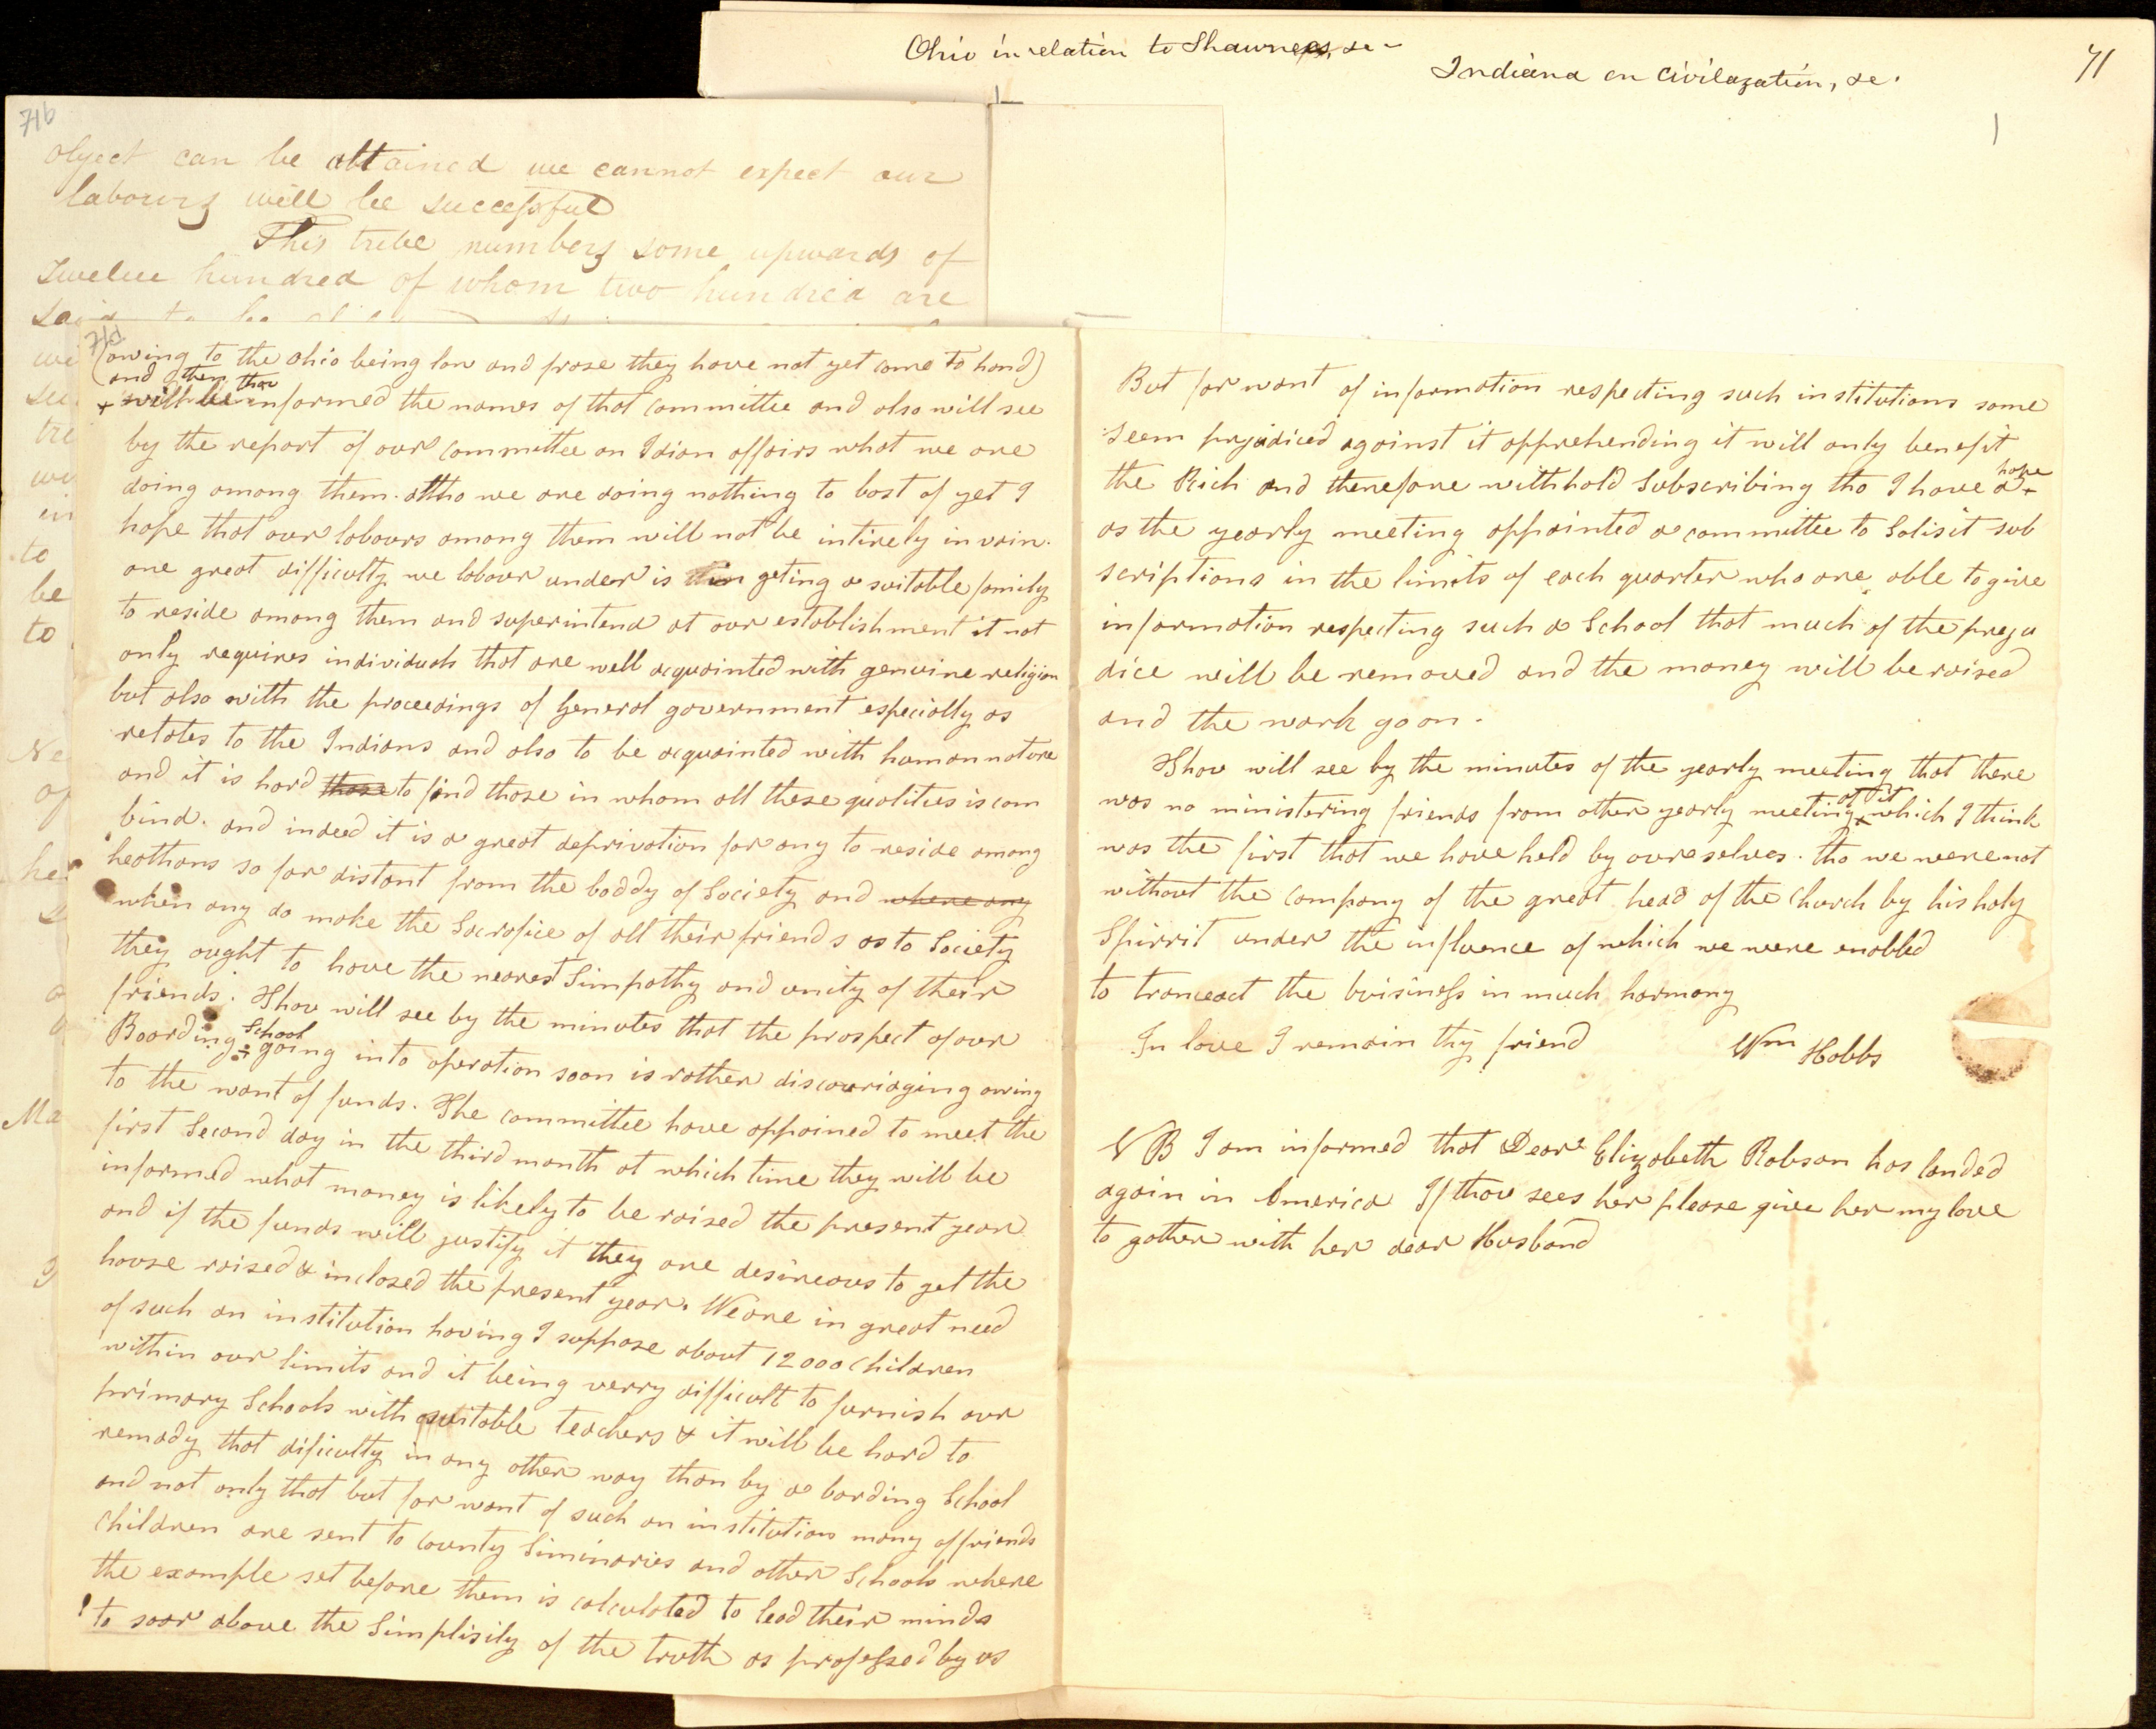 Ohio in relation to Shawnees, &c
Indiana on Civilazation, &c.
71
71b
object can be attained we cannot expect our
labours will be successful
This tribe numbers some upwards of
Twelve hundred of whom two hundred are
71d
(owing to the Ohio being low and froze they have not yet come to hand)
and then thou
+ will be informed the names of that committee and also will see
by the report of our committee on Idian affairs what we are
doing among them. altho we are doing nothing to bost of yet I
hope that our labours among them will not be intirely in vain.
one great difficulty we labour under is geting a suitable family
to reside among them and superintend at our establishment it not
only requires individuals that are well acquainted with genuine religion
but also with the proceedings of General government especially as
relates to the Indians and also to be acquainted with human nature
and it is hard those to find those in whom all these qualities is com
bind. and indeed it is a great deprivation for any to reside among
heathans so far distant from the boddy of Society and where any
when any do make the Sacrafice of all their friends as to Society
they ought to have the nearest Simpathy and unity of their
friends. Thou will see by the minutes that the prospect of our
School
Boarding + going into operation soon is rather discouridging owing
to the want of funds. The committee have appoined to meet the
first Second day in the third month at which time they will be
informed what money is likely to be raised the present year
and if the funds will justify it they are desireous to get the
house raised & inclosed the present year. We are in great need
of such an institution having I suppose about 12000 Children
within our limits and it being verry difficult to furnish our
primary Schools with suitable teachers & it will be hard to
remady that dificulty in any other way than by a bording School
and not only that but for want of such an institution many of friends
Children are sent to County Siminaries and other Schools where
the example set before them is calculated to lead their minds
to soar above the Simplisity of the truth as professed by us
But for want of information respecting such institutions some
seem prjudiced against it apprehending it will only benefit
hope
the Rich and therefore withhold Subscribing tho I have a +
as the yearly meeting appointed a committee to Solisit sub
scriptions in the limits of each quarter who are able to give
information respecting such a School that much of the preju
dice will be removed and the money will be raised
and the work go on.
Thou will see by the minutes of the yearly meeting that there
at it
was no ministering friends from other yearly meeting x which I think
was the first that we have held by ourselves. tho we were not
without the company of the great head of the Church by his holy
Spirrit under the influence of which we were enabled
to tranceact the buisiness in much harmony
In love I remain thy friend
Wm Hobbs
NB I am informed that Dear Elizabeth Robson has landed
again in America If thou sees her please give her my love
to gather with her dear Husband